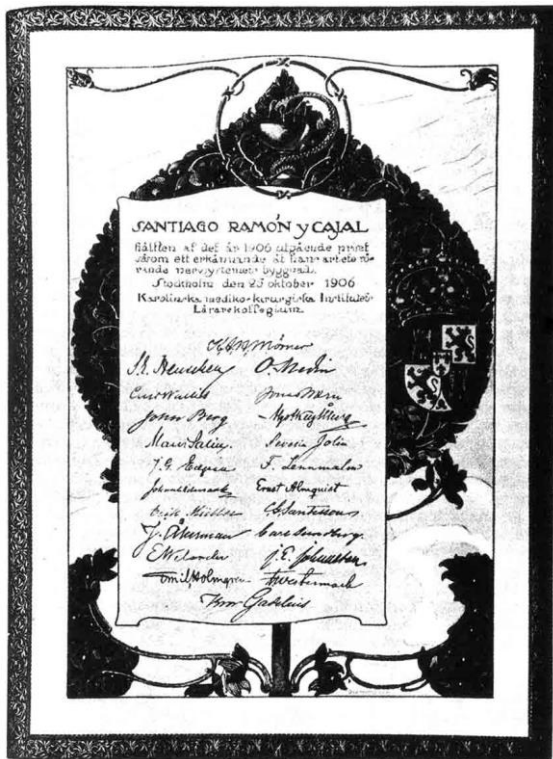 SANTIAGO RAMÓN y CAJAL
hälften af det år 1906 utgående priset
såsom ett erkännande åt hans arbete rö-
rande nervsystemets byggnad.
Stockholm den 25 oktober 1906
Karolinska mediko-kirurgiska Institutets
Lärarekollegium.
K.A.H. Mörner
S.E. Henschen O. Medin
Curt Wallis
John Berg
Severin Jolin
J.G. Edgren F. Lennmalm
Johan Widmark Ernst Almquist
Erik Müller C.G. Santesson
J. Åkerman Carl Sundberg
E. Welander J.E. Johansson
Emil Holmgren F. Westermark
Gadelius